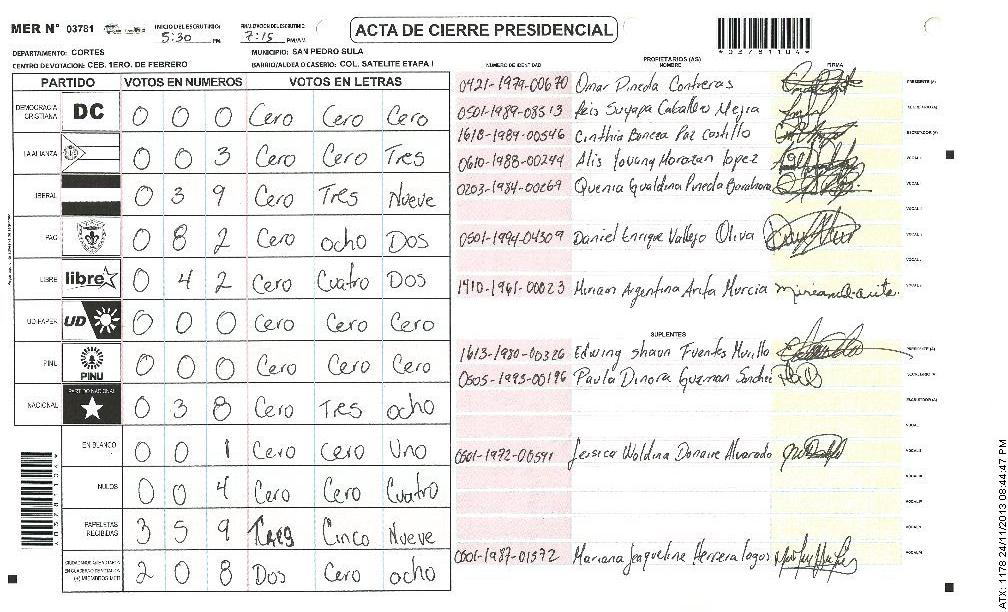 MER N° 03781 INICIO DEL ESCRUTINIO: 5:30 PM FINALIZACION DEL ESCRUTINIO: 7:15 PM/AM
ACTA DE CIERRE PRESIDENCIAL
DEPARTAMENTO: CORTES MUNICIPIO: SAN PEDRO SULA
CENTRO DE VOTACION: CEB. 1ERO. DE FEBRERO BARRIO/ALDEA O CASERIO: COL. SATELITE ETAPA I
PARTIDO VOTOS EN NUMEROS VOTOS EN LETRAS
DEMOCRACIA CRISTIANA DC 0 0 0 Cero Cero Cero
LA ALIANZA 0 0 3 Cero Cero Tres
LIBERAL 0 3 9 Cero Tres Nueve
PAC 0 8 2 Cero ocho Dos
LIBRE libre 0 4 2 Cero Cuatro Dos
UD-FAPER UD 0 0 0 Cero Cero Cero
PINU PINU 0 0 0 Cero Cero Cero
NACIONAL PARTIDO NACIONAL 0 3 8 Cero Tres ocho
EN BLANCO 0 0 1 Cero Cero Uno
NULOS 0 0 4 Cero Cero Cuatro
PAPELETAS RECIBIDAS 3 5 9 Tres Cinco Nueve
2 0 8 Dos Cero ocho
NUMERO DE IDENTIDAD PROPIETARIOS (AS) NOMBRE FIRMA
0421-1979-00670 Omar Pineda Contreras PRESIDENTE (A)
0501-1989-08513 Suyapa Caballero Mejia SECRETARIO (A)
1618-1989-00546 Cinthia Paz Castillo ESCRUTADOR (A)
0610-1988-00244 Alis Morazan lopez VOCAL I
0203-1984-00269 Pineda VOCAL
0501-1994-04309 Daniel Enrique Vallejo Oliva VOCAL
1910-1961-00023 Miriam Argentina Arita Murcia VOCAL
SUPLENTES
1613-1980-00326 Edwing shaun Fuentes Murillo PRESIDENTE (A)
0505-1993-00196 Paula Dinora Guzman Sanchez SECRETARIO (A)
ESCRUTADOR (A)
0501-1972-00591 Jessica Waldina Donaire Alvarado
0501-1987-01572 Mariana Jaqueline Herrera lagos
ATX: 1178 24/11/2013 08:44:47 PM